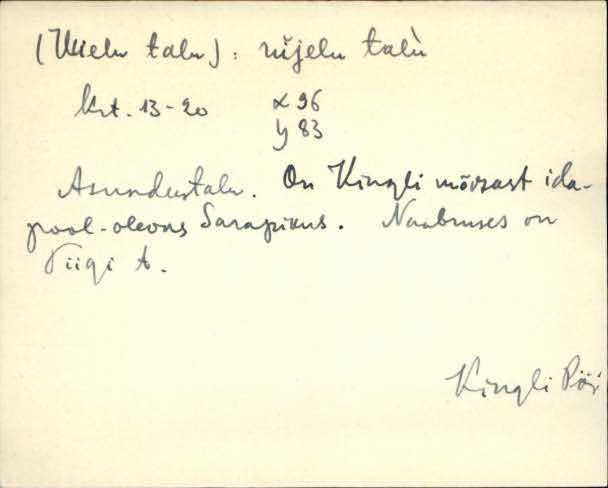 (Uuielu talu): uijelu talu
Krt. 13-20 x 96
y 83
Asundustalu. On Kingli mõisast ida-
pool-olevas Sarapikus. Naabruses on
Viigi t.
Kingli Pöi